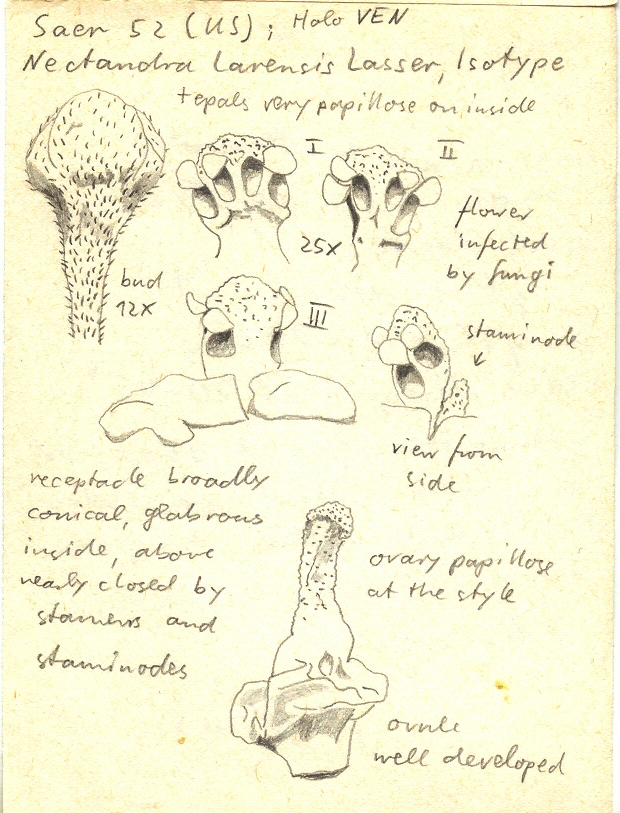 Saer 52 (US); Holo VEN
Nectandra Larensis Lasser, Isotype
tepals very papillose on inside
I
II
flower
infected
by fungi
25x
bud
12x
III
staminode
view from
side
receptacle broadly
conical, glabrous
inside, above
nearly closed by
stamens and
staminodes
ovary papillose
at the style
ovule
well developed